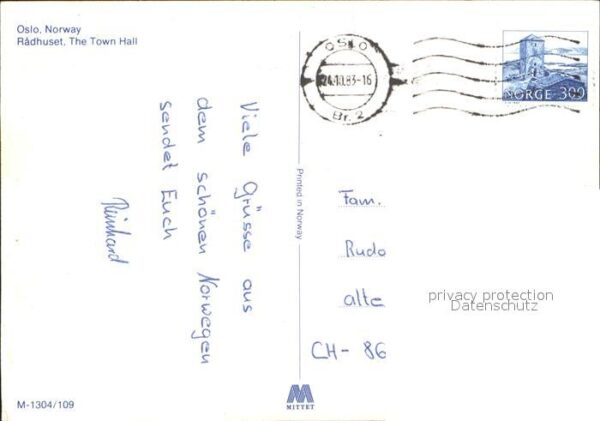 Oslo, Norway
Rådhuset, The Town Hall
OSLO
24.10.83-16
Br. 2
NORGE 300
Viele Grüsse aus
dem schönen Norwegen
sendet Euch
Reinhard
Printed in Norway
Fam.
Rudo
alte
CH - 86
privacy protection
Datenschutz
M-1304/109
MITTET